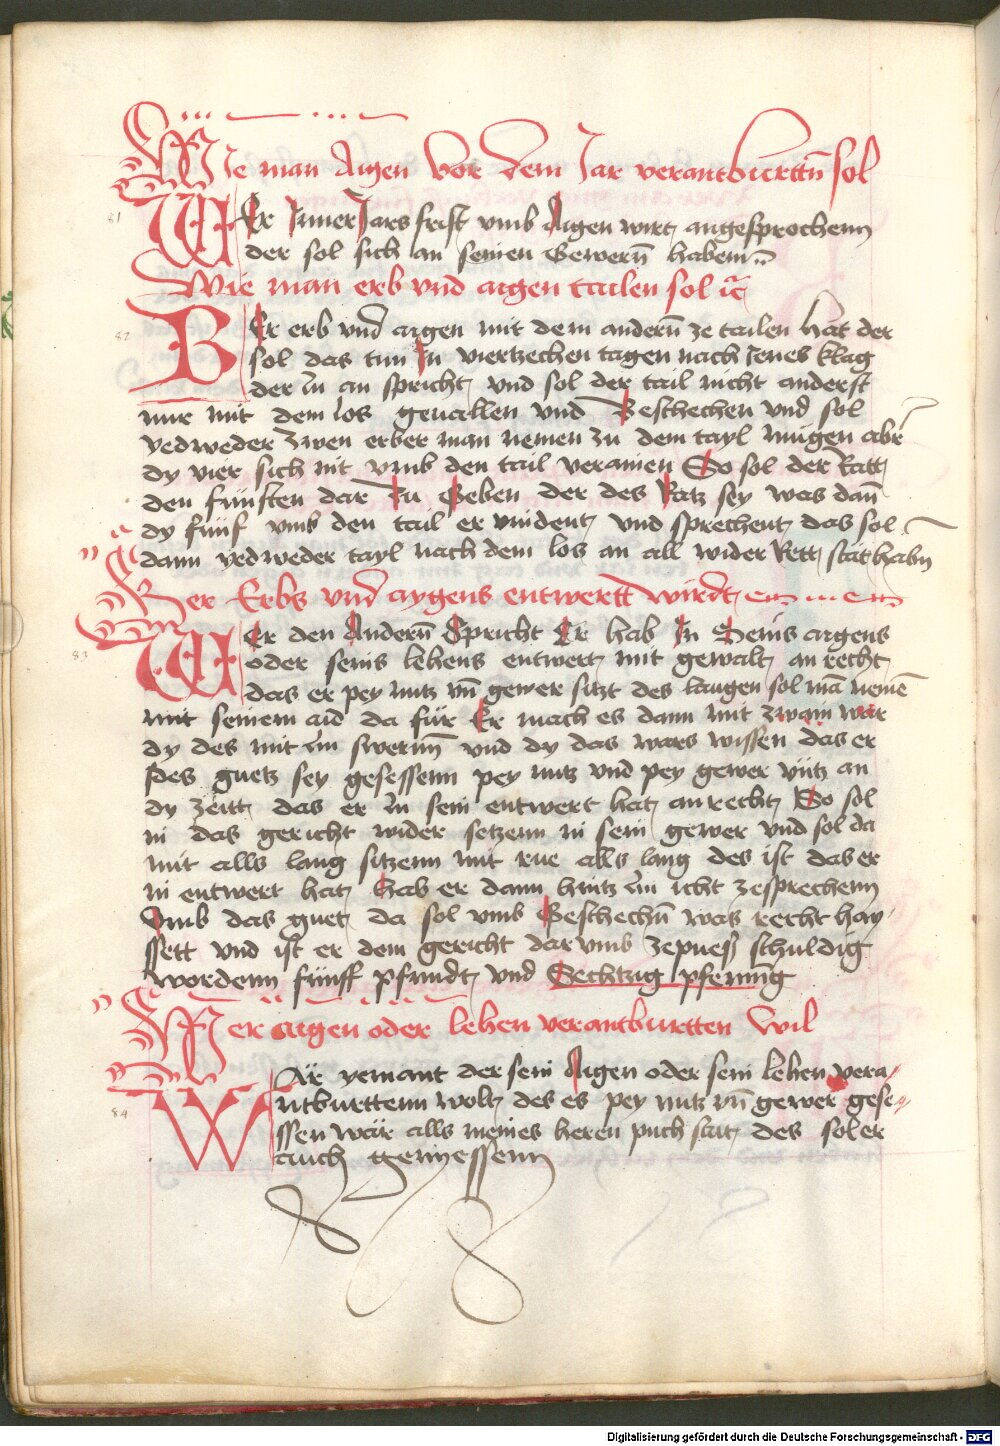 Wie man Aigen vor dem Jar verantburttn̄ sol
81
WEr Inner Jars frist vmb Aigen wirt angesprochenn
der sol sich an seinen Gewern̄ habenn
Wie man erb vnd aigen tailen sol ꝛc̄
82
BEr erb vnd aigen mit dem andern̄ ze tailen hat der
sol das tun In viertzechen tagen nach Jenes klag
der in an spricht vnd sol der tail nicht anderst
nur mit dem los geuallen vnd Beschechen vnd sol
yedweder zwen erber man nemen zu dem tayl mugen aber
dy vier sich nit vmb den tail veranien So sol der Ratt
den funften dar Zu Geben der des Ratz sey was dan̄
dy funf vmb den tail er vindent vnd sprechent das sol
dann yedweder tayl nach dem los an all wider Rett stät habn̄
Wer Erbs vnd aygens entwertt wirdt
83
WEr den Andern̄ Spricht Er hab In Seins aigens
oder seins lehens entwert mit gewalt an recht
das er pey nutz vn̄ gewer sitzt des laugen sol mā nemē
mit seinem aid da für Er mach es dann mit zwain war
dy des mit im swerenn vnd dy das wars wissen das er
des guetz sey gesessenn pey nutz vnd pey gewer vntz an
dy zeitt das er in sein entwert hat an recht So sol
in das gericht wider setzenn in sein gewer vnd sol da
mit alls lang sitzenn mit rue alls lang des ist das er
in entwert hat hab er dann hintz im icht zesprechenn
vmb das guet da sol vmb Geschechn̄ was recht hay
ssett vnd ist er dem gericht dar vmb zepuess schuldig
wordenn fünff pfundt vnd Sechtzig pfening
Wer aigen oder lehen verantburtten wil
84
WAr yemant der sein Aigen oder sein lehen vera
ntburttenn wolt des es pey nutz vn̄ gewer gese
ssen wär alls meines heren puch sait des sol er
auch geniessenn
Digitalisierung gefördert durch die Deutsche Forschungsgemeinschaft - DFG